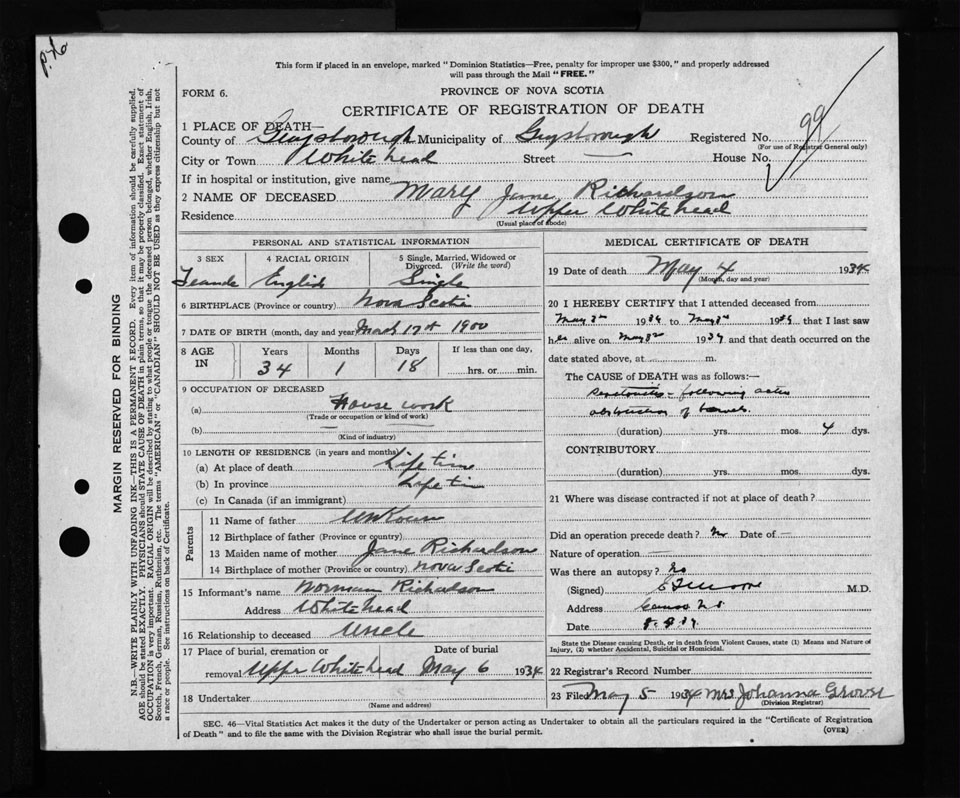 P. 76
This form if placed in an envelope, marked "Dominion Statistics—Free, penalty for improper use $300," and properly addressed
will pass through the Mail "FREE."
FORM 6.
PROVINCE OF NOVA SCOTIA
CERTIFICATE OF REGISTRATION OF DEATH
1 PLACE OF DEATH—
County of Guysborough Municipality of Guysborough Registered No. 99
(For use of Registrar General only)
City or Town White head Street — House No.
If in hospital or institution, give name
2 NAME OF DECEASED Mary Jane Richardson
Residence Upper White head
(Usual place of abode)
PERSONAL AND STATISTICAL INFORMATION
3 SEX 4 RACIAL ORIGIN 5 Single, Married, Widowed or
Divorced. (Write the word)
Female English Single
6 BIRTHPLACE (Province or country) Nova Scotia
7 DATE OF BIRTH (month, day and year) March 17 1900
8 AGE IN Years Months Days If less than one day,
34 1 18 hrs. or min.
9 OCCUPATION OF DECEASED
(a) House work
(Trade or occupation or kind of work)
(b) —
(Kind of industry)
10 LENGTH OF RESIDENCE (in years and months)
(a) At place of death Life time
(b) In province Life tim
(c) In Canada (if an immigrant)
Parents
11 Name of father
12 Birthplace of father (Province or country)
13 Maiden name of mother Jane Richardson
14 Birthplace of mother (Province or country) Nova Scoti
15 Informant's name Norman Richardson
Address White head
16 Relationship to deceased Uncle
17 Place of burial, cremation or Date of burial
removal Upper White head May 6 1934
18 Undertaker
(Name and address)
MEDICAL CERTIFICATE OF DEATH
19 Date of death May 4 1934
(Month, day and year)
20 I HEREBY CERTIFY that I attended deceased from
May 3rd 1934 to May 3rd 1934 that I last saw
her alive on May 3rd 1934 and that death occurred on the
date stated above, at m.
The CAUSE OF DEATH was as follows:—
Peritonitis - following acute
obstruction of bowels.
(duration) yrs. mos. 4 dys.
CONTRIBUTORY.
(duration) yrs. mos. dys.
21 Where was disease contracted if not at place of death?
Did an operation precede death? No Date of —
Nature of operation —
Was there an autopsy? No
(Signed) Moore M.D.
Address Canso N.S.
Date
State the Disease causing Death, or in death from Violent Causes, state (1) Means and Nature of
Injury, (2) whether Accidental, Suicidal or Homicidal.
22 Registrar's Record Number
23 Filed May 5 1934 Mrs Johanna
(Division Registrar)
SEC. 46—Vital Statistics Act makes it the duty of the Undertaker or person acting as Undertaker to obtain all the particulars required in the "Certificate of Registration
of Death" and to file the same with the Division Registrar who shall issue the burial permit.
(OVER)
MARGIN RESERVED FOR BINDING
N.B.—WRITE PLAINLY WITH UNFADING INK—THIS IS A PERMANENT RECORD. Every item of information should be carefully supplied.
AGE should be stated EXACTLY. PHYSICIANS should STATE CAUSE OF DEATH in plain terms, so that it may be properly classified. Exact statement of
OCCUPATION is very important. RACIAL ORIGIN will be described by stating to what people or tongue the deceased person belonged, whether English, Irish,
Scotch, French, German, Russian, Ruthenian, etc. The terms "AMERICAN" or "CANADIAN" SHOULD NOT BE USED as they express citizenship but not
a race or people. See instructions on back of Certificate.